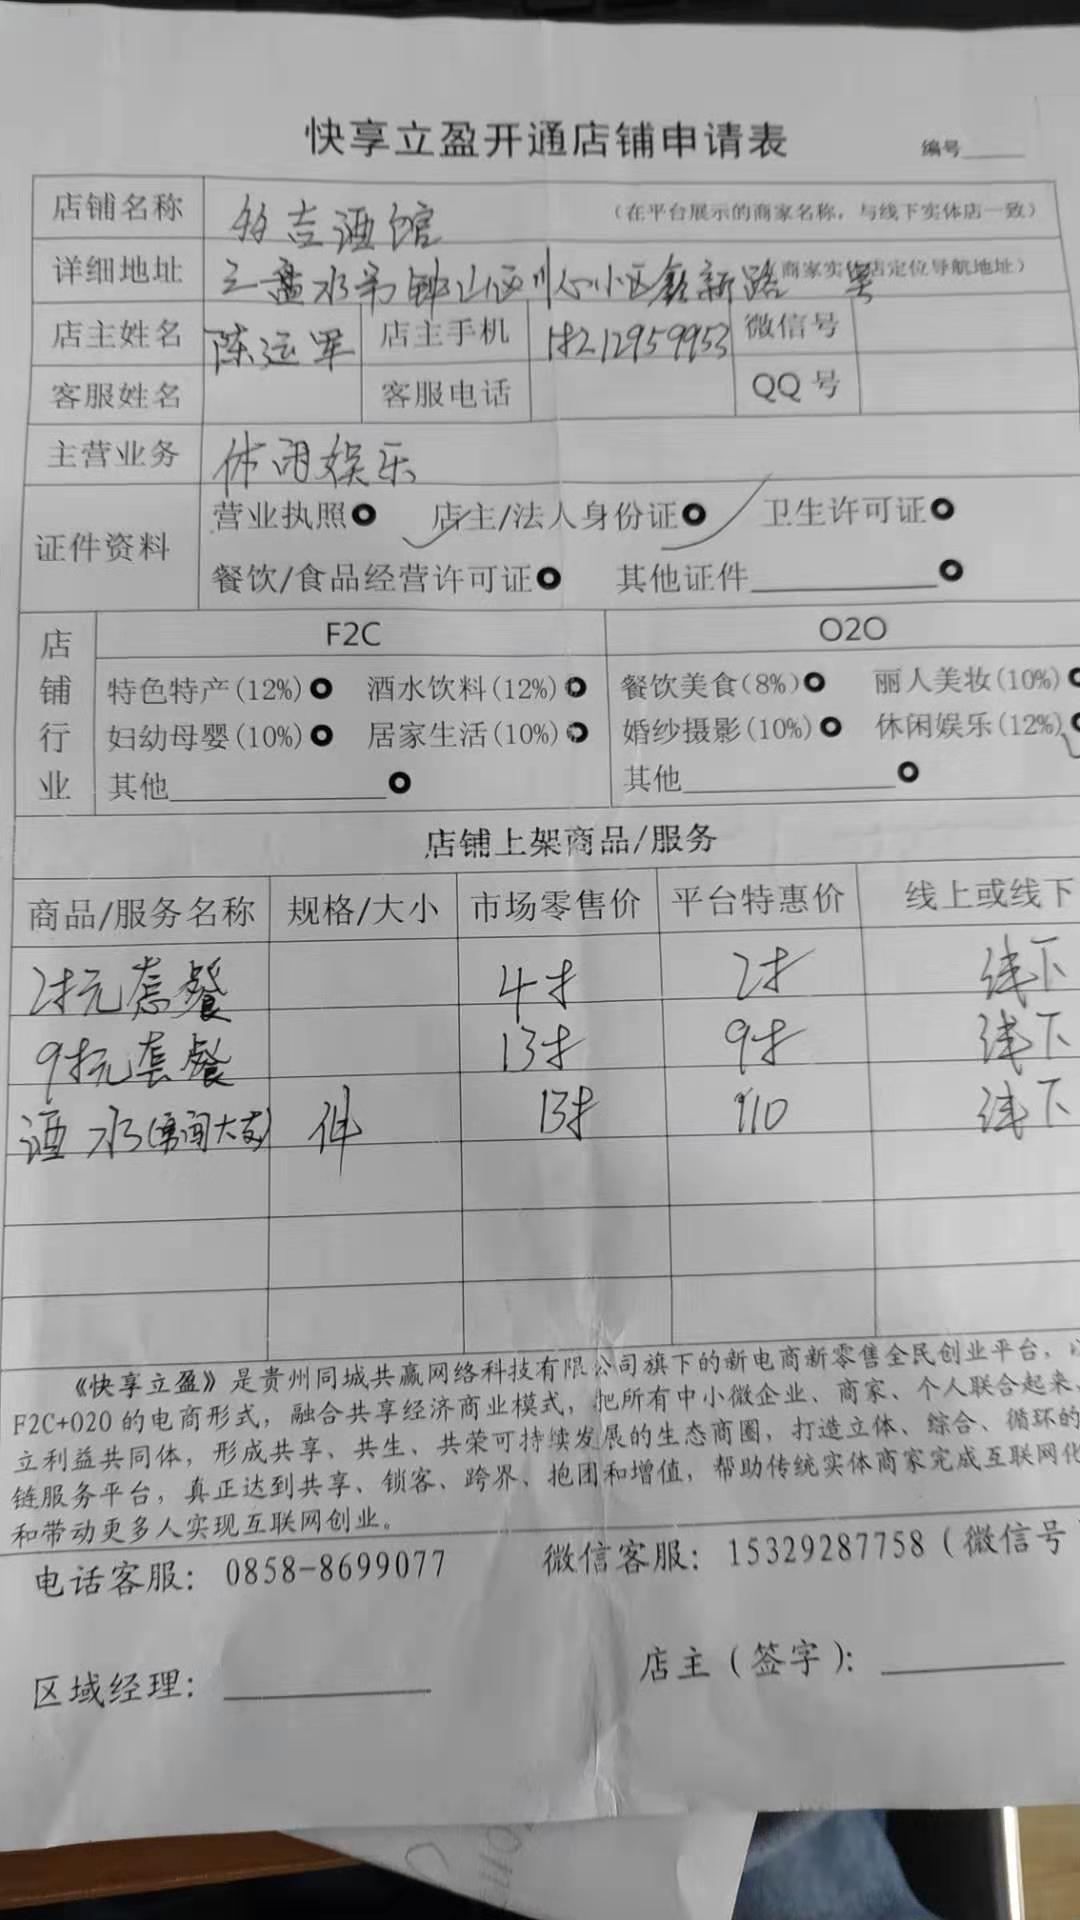 快享立盈开通店铺申请表
编号
店铺名称 吉酒馆 (在平台展示的商家名称，与线下实体店一致)
详细地址 盘水市钟山区川心小区 新路 号 (商家实体店定位导航地址)
店主姓名 陈运军 店主手机 18212959953 微信号
客服姓名 客服电话 QQ号
主营业务 休闲娱乐
证件资料 营业执照 店主/法人身份证 卫生许可证
餐饮/食品经营许可证 其他证件
店铺行业 F2C O2O
特色特产(12%) 酒水饮料(12%) 餐饮美食(8%) 丽人美妆(10%)
妇幼母婴(10%) 居家生活(10%) 婚纱摄影(10%) 休闲娱乐(12%)
其他 其他
店铺上架商品/服务
商品/服务名称 规格/大小 市场零售价 平台特惠价 线上或线下
28元套餐 48 28 线下
98元套餐 138 98 线下
酒水(勇闯大支) 件 138 110 线下
《快享立盈》是贵州同城共赢网络科技有限公司旗下的新电商新零售全民创业平台，
F2C+O2O的电商形式，融合共享经济商业模式，把所有中小微企业、商家、个人联合起来，
立利益共同体，形成共享、共生、共荣可持续发展的生态商圈，打造立体、综合、循环的
链服务平台，真正达到共享、锁客、跨界、抱团和增值，帮助传统实体商家完成互联网化
和带动更多人实现互联网创业。
电话客服：0858-8699077 微信客服：15329287758（微信号
区域经理： 店主（签字）：